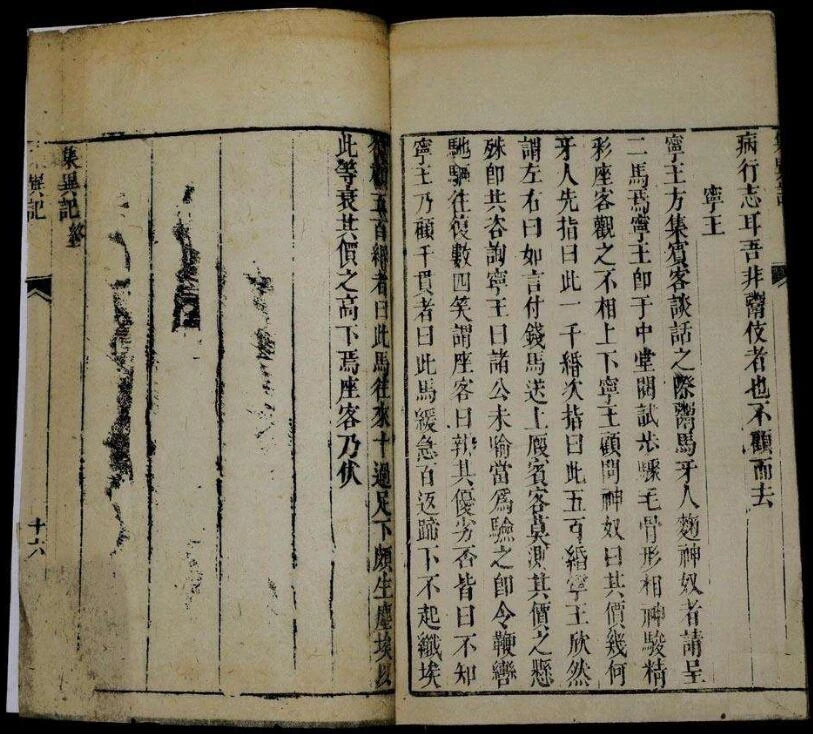 病行志耳吾非鬻伎者也不顧而去
寧王
寧王方集賓客談話之際鬻馬牙人麴神奴者請呈
二馬焉寧王卽于中堂閱試步驟毛骨形相神駿精
彩座客觀之不相上下寧王顧問神奴曰其價幾何
牙人先指曰此一千緡次指曰此五百緡寧王欣然
謂左右曰如言付錢馬送上廐賓客莫測其價之懸
殊卽共咨詢寧王曰諸公未喻當爲驗之卽令鞭轡
馳驅往復數四笑謂座客曰孰其優劣否皆曰不知
寧王乃顧千貫者曰此馬緩急百返蹄下不起纖埃
顧五百緡者曰此馬往來十過足下頗生塵埃以
此等衰其價之高下焉座客乃伏
集異記終
異記
十六